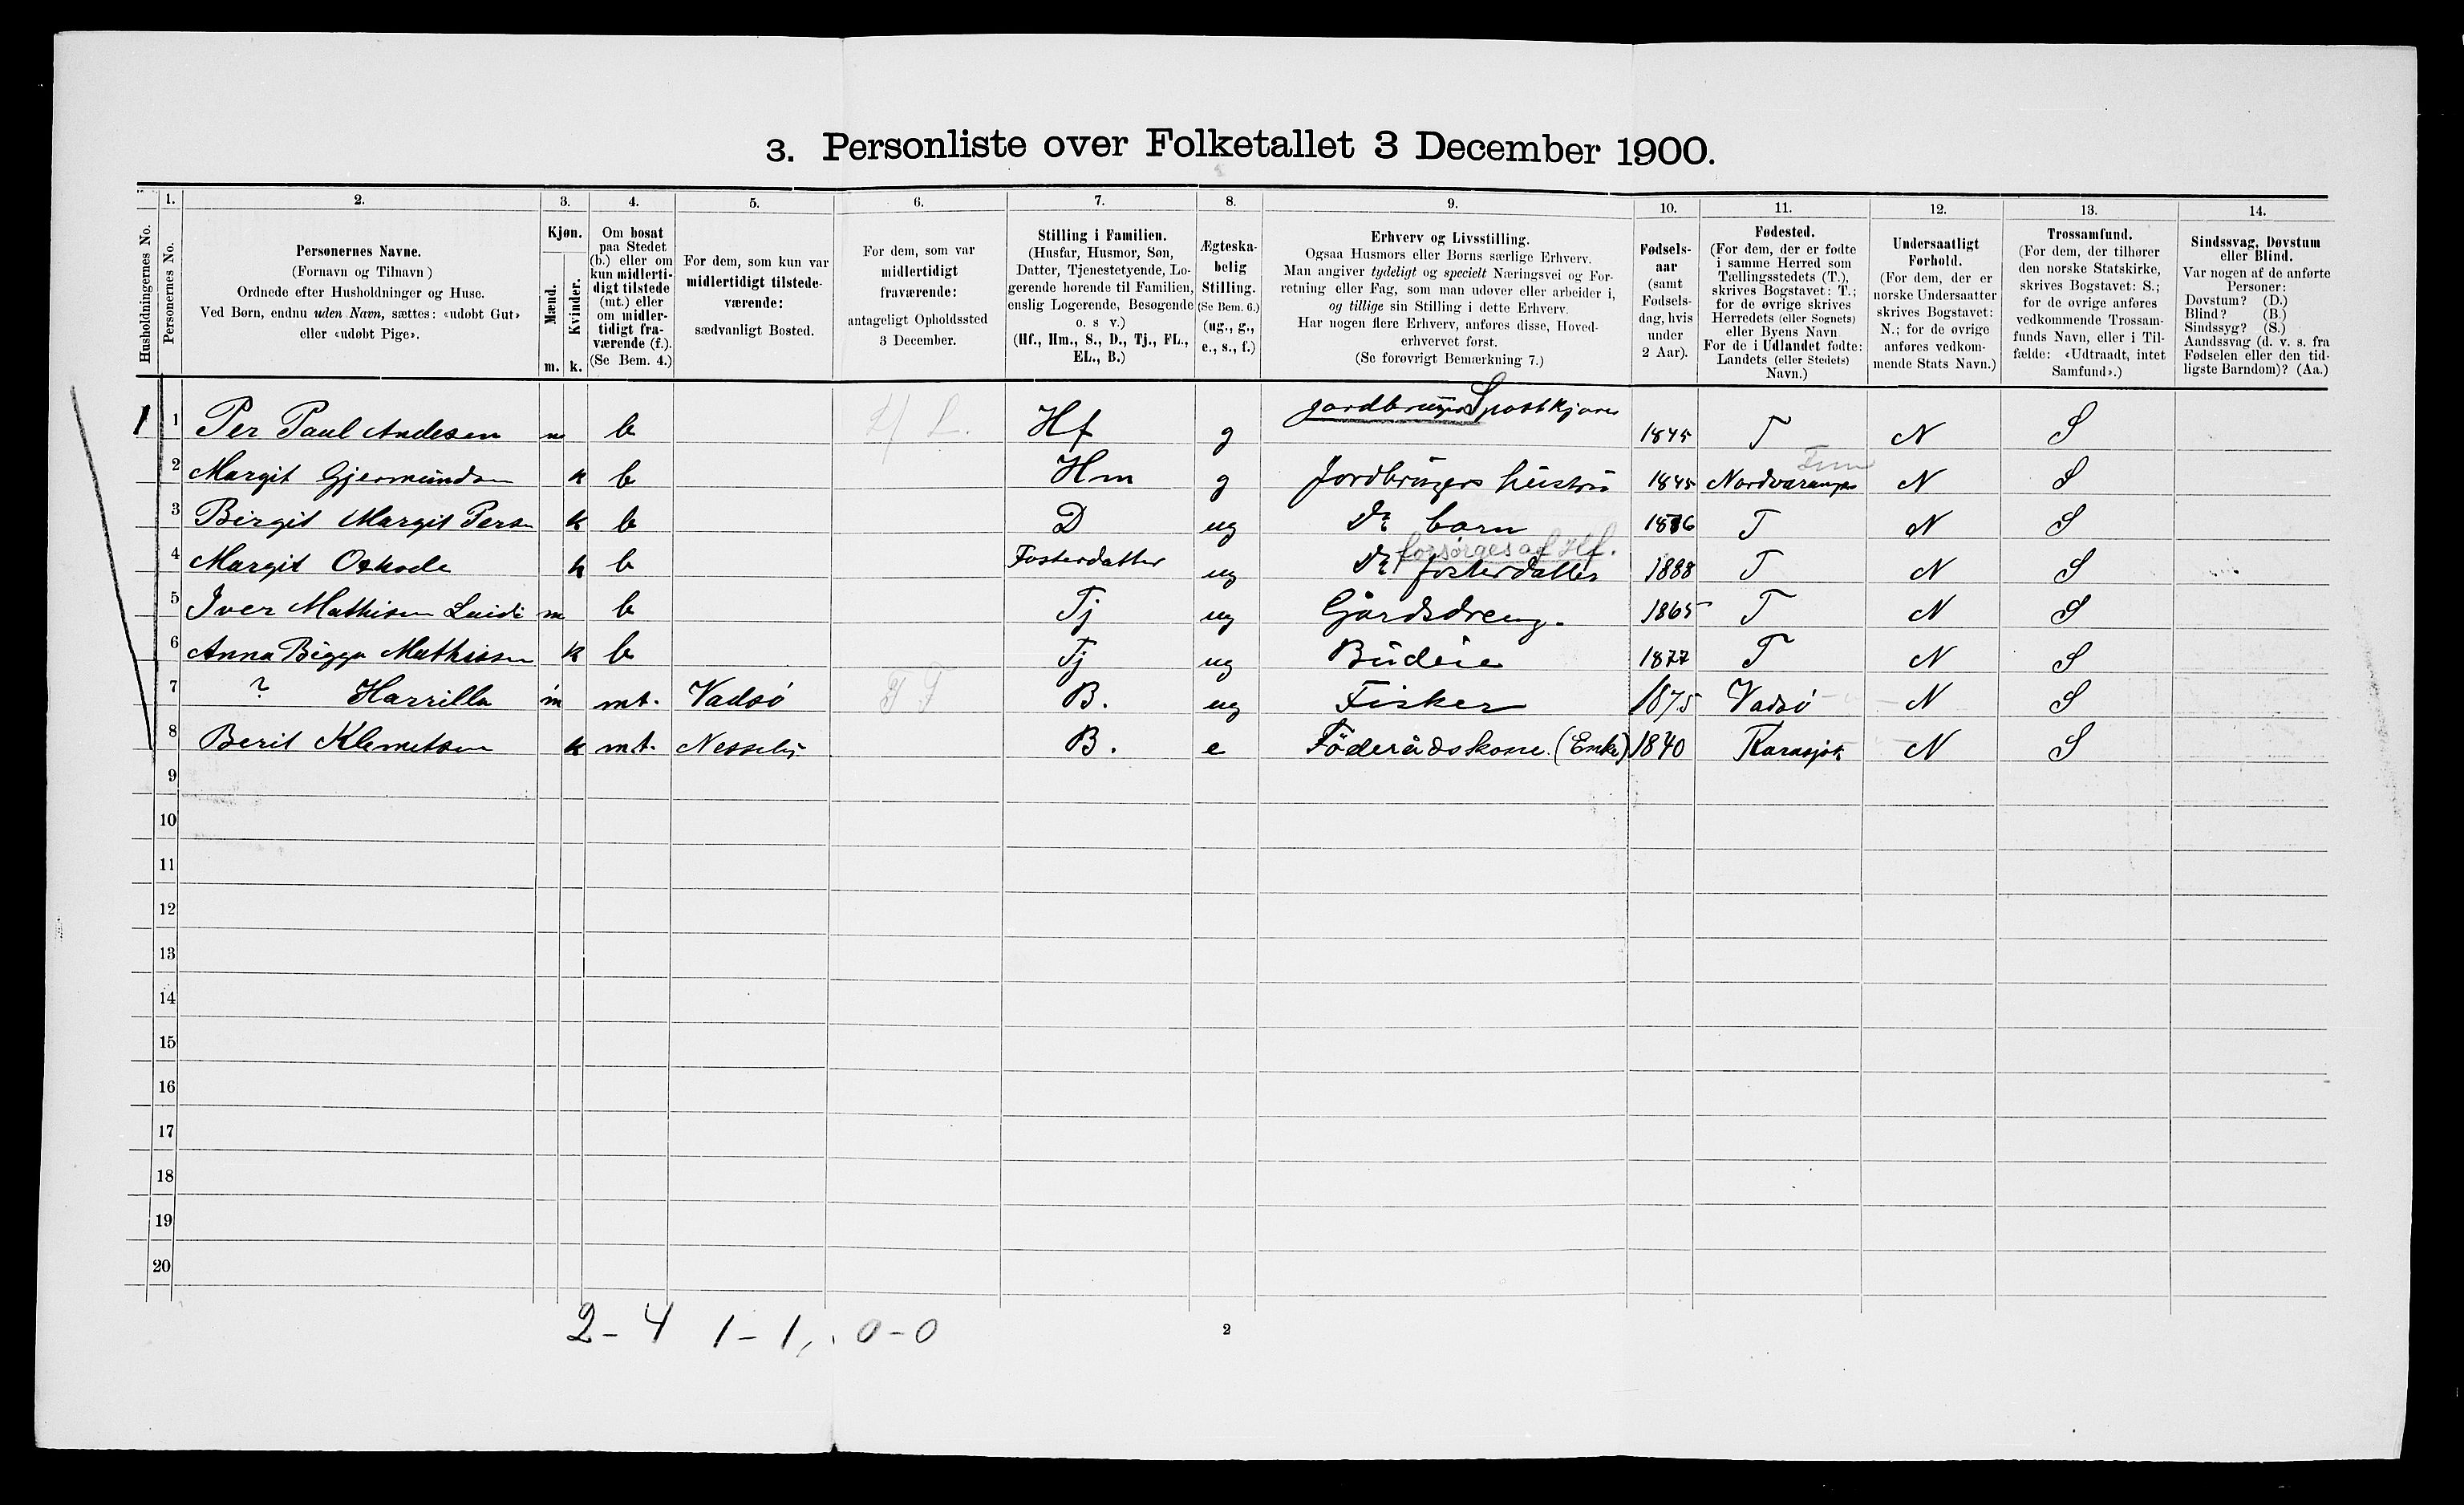 3. Personliste over Folketallet 3 December 1900.
Husholdningernes No.
1. Personernes No.
2. Personernes Navne.
(Fornavn og Tilnavn)
Ordnede efter Husholdninger og Huse.
Ved Børn, endnu uden Navn, sættes: «udøbt Gut»
eller «udøbt Pige».
3. Kjøn.
Mænd. Kvinder.
m. k.
4. Om bosat
paa Stedet
(b.) eller om
kun midlerti-
digt tilstede
(mt.) eller
om midler-
tidigt fra-
værende (f.).
(Se Bem. 4.)
5. For dem, som kun var
midlertidigt tilstede-
værende:
sædvanligt Bosted.
6. For dem, som var
midlertidigt
fraværende:
antageligt Opholdssted
3 December.
7. Stilling i Familien.
(Husfar, Husmor, Søn,
Datter, Tjenestetyende, Lo-
gerende hørende til Familien,
enslig Logerende, Besøgende
o. s v.)
(Hf., Hm., S., D., Tj., FL.,
EL., B.)
8. Ægteska-
belig
Stilling.
(Se Bem. 6.)
(ug., g.,
e., s., f.)
9. Erhverv og Livsstilling.
Ogsaa Husmors eller Børns særlige Erhverv.
Man angiver tydeligt og specielt Næringsvei og For-
retning eller Fag, som man udøver eller arbeider i,
og tillige sin Stilling i dette Erhverv.
Har nogen flere Erhverv, anføres disse, Hoved-
erhvervet først.
(Se forøvrigt Bemærkning 7.)
10. Fødsels-
aar
(samt
Fødsels-
dag, hvis
under
2 Aar).
11. Fødested.
(For dem, der er fødte
i samme Herred som
Tællingsstedets (T.),
skrives Bogstavet: T.;
for de øvrige skrives
Herredets (eller Sognets)
eller Byens Navn
For de i Udlandet fødte:
Landets (eller Stedets)
Navn.)
12. Undersaatligt
Forhold.
(For dem, der er
norske Undersaatter
skrives Bogstavet:
N.; for de øvrige
anføres vedkom-
mende Stats Navn.)
13. Trossamfund.
(For dem, der tilhører
den norske Statskirke,
skrives Bogstavet: S.;
for de øvrige anføres
vedkommende Trossam-
funds Navn, eller i Til-
fælde: «Udtraadt, intet
Samfund».)
14. Sindssvag, Døvstum
eller Blind.
Var nogen af de anførte
Personer:
Døvstum? (D.)
Blind? (B.)
Sindssyg? (S.)
Aandssvag (d. v. s. fra
Fødselen eller den tid-
ligste Barndom)? (Aa.)
1 1 Per Paul Andersen m b Hf g Jordbruger 1845 T N S
2 Margit Gjermundsen k b Hm g Jordbrugers hustru 1845 Nordvaranger N S
3 Birgit Margit Persen k b D ug Do barn 1886 T N S
forsørges af Hf.
4 Margit k b Fosterdatter ug Do fosterdatter 1888 T N S
5 Iver Mathisen m b Tj ug Gårdsdreng. 1865 T N S
6 Anna Bigga Mathisen k b Tj ug Budeie 1877 T N S
7 ? Harrilla m mt. Vadsö B. ug Fisker 1875 Vadsö N S
8 Berit Klemetsen k mt. Nesseby B. e Föderådskone. (Enke) 1840 Karasjok N S
9
10
11
12
13
14
15
16
17
18
19
20
2-4 1-1, 0-0
2